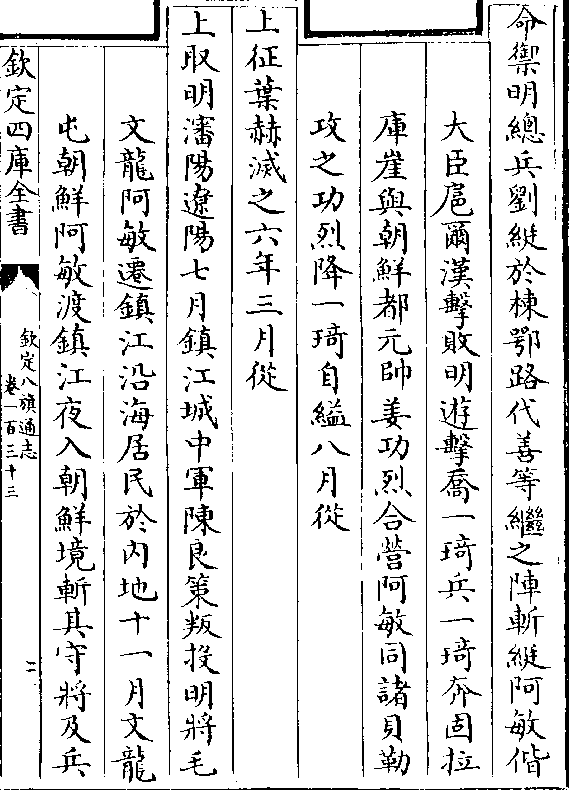 命禦明總兵劉綎於棟鄂路代善等繼之陣斬綎阿敏偕
大臣扈爾漢擊敗明遊擊喬一琦兵一琦奔固拉
庫崖與朝鮮都元帥姜功烈合營阿敏同諸貝勒
攻之功烈降一琦自縊八月從
上征葉赫滅之六年三月從
上取明瀋陽遼陽七月鎮江城中軍陳良策叛投明將毛
文龍阿敏遷鎮江沿海居民於內地十一月文龍
屯朝鮮阿敏渡鎮江夜入朝鮮境斬其守將及兵
欽定四庫全書
欽定八旗通志
卷一百三十三
二